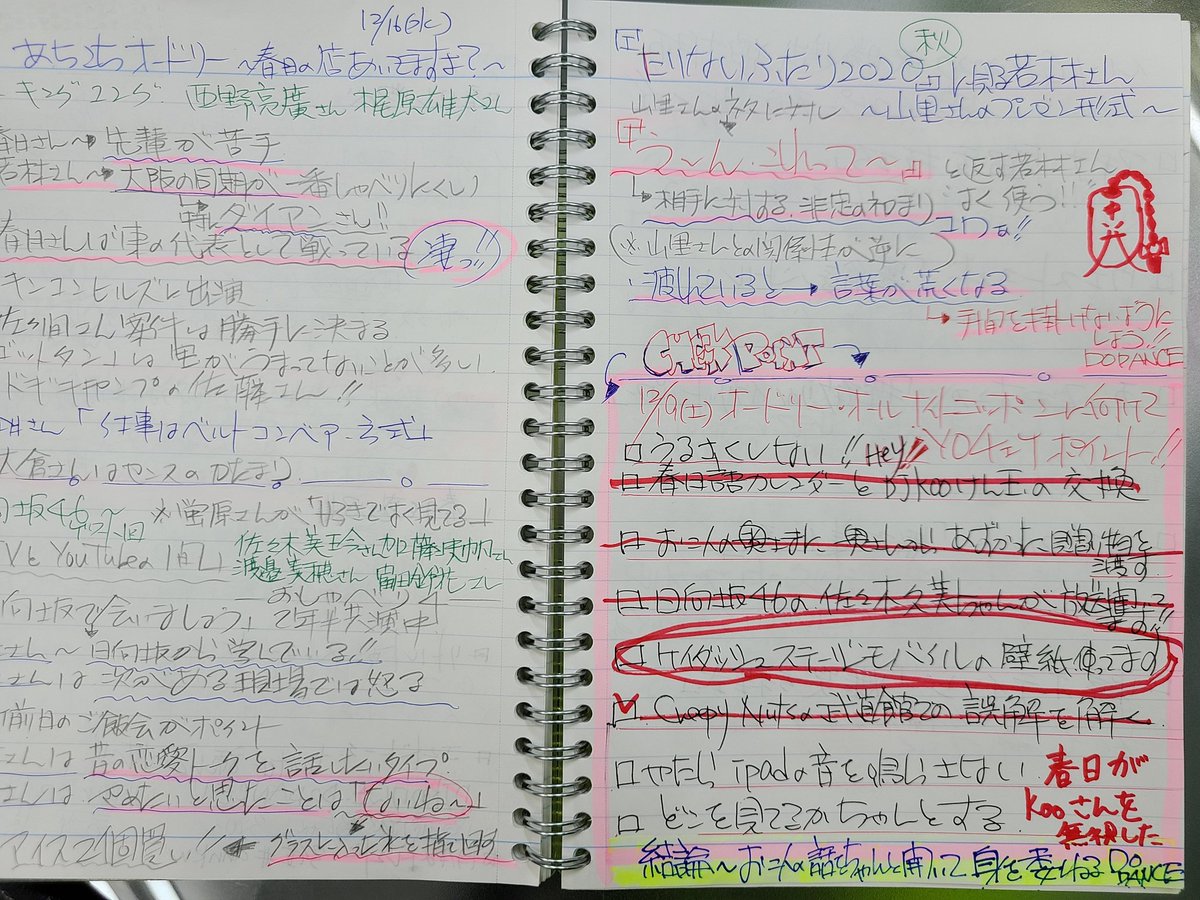 12/16(水)
あちこちオードリー〜春日の店あいてますよ?〜
キングコング 西野亮廣さん 梶原雄太さん
春日さん〜→先輩が苦手
若林さん〜→大阪の同期が一番しゃべりにくい
特にダイアンさん!!
春日さんは、の代表として戦っている 凄っ!!
キンコンヒルズに出演
佐久間さん案件は勝手に決まる
ゴッドタン」は里がうまってないことが多い
ドキドキキャンプの佐藤さん!!
「仕事はベルトコンベアー方式」
大倉さんはセンスのかたまり
日向坂46 ※蛍原さんが「好きですごく見てる」
佐々木美玲さん 加藤史帆さん
渡邉美穂さん 富田鈴花さん
TVとYouTubeの
おしゃべり
日向坂で会いましょう」で2年半共演中
さん〜日向坂から学んでいる!!
さんは次がある現場では終る
前日のご飯会がポイント
さんは昔の恋愛トークを話したいタイプ
さんは、やめたいと思ったことは「ないね〜」
アイス2個置い!! ← グラスに入った氷を指で回す
秋
「たりないふたり2020」に観る若林さん
山里さんのネタに対し 〜山里さんのプレゼン形式〜
「う〜ん、これって〜」と返す若林さん
↳相手に対する非忠の初まり すごく使う!!
コワぁ!!
(※山里さんとの関係性が逆に)
・疲れていると→言葉が荒くなる
↳手間を掛けないようにしよう!!
DO DANCE
CHECK POINT
12/19(土)オードリー・オールナイトニッポンに向けて
□うるさくしない!! Hey!! YOチェケポイント!!
□春日語カレンダーとDJ KOOけん玉の交換
□お二人の奥さまに、奥さんからあずかった贈り物を渡す
□日向坂46の佐々木久美ちゃんが放送
□ケイダッシュステージモバイルの壁紙使ってます
☑Creepy Nutsの武道館での誤解を解く
□やたらipadの音を鳴らさない 春日が
□どこを見てるかちゃんとする KOOさんを
無視した
結論〜お二人の話をちゃんと聞いて身を委ねる DO DANCE